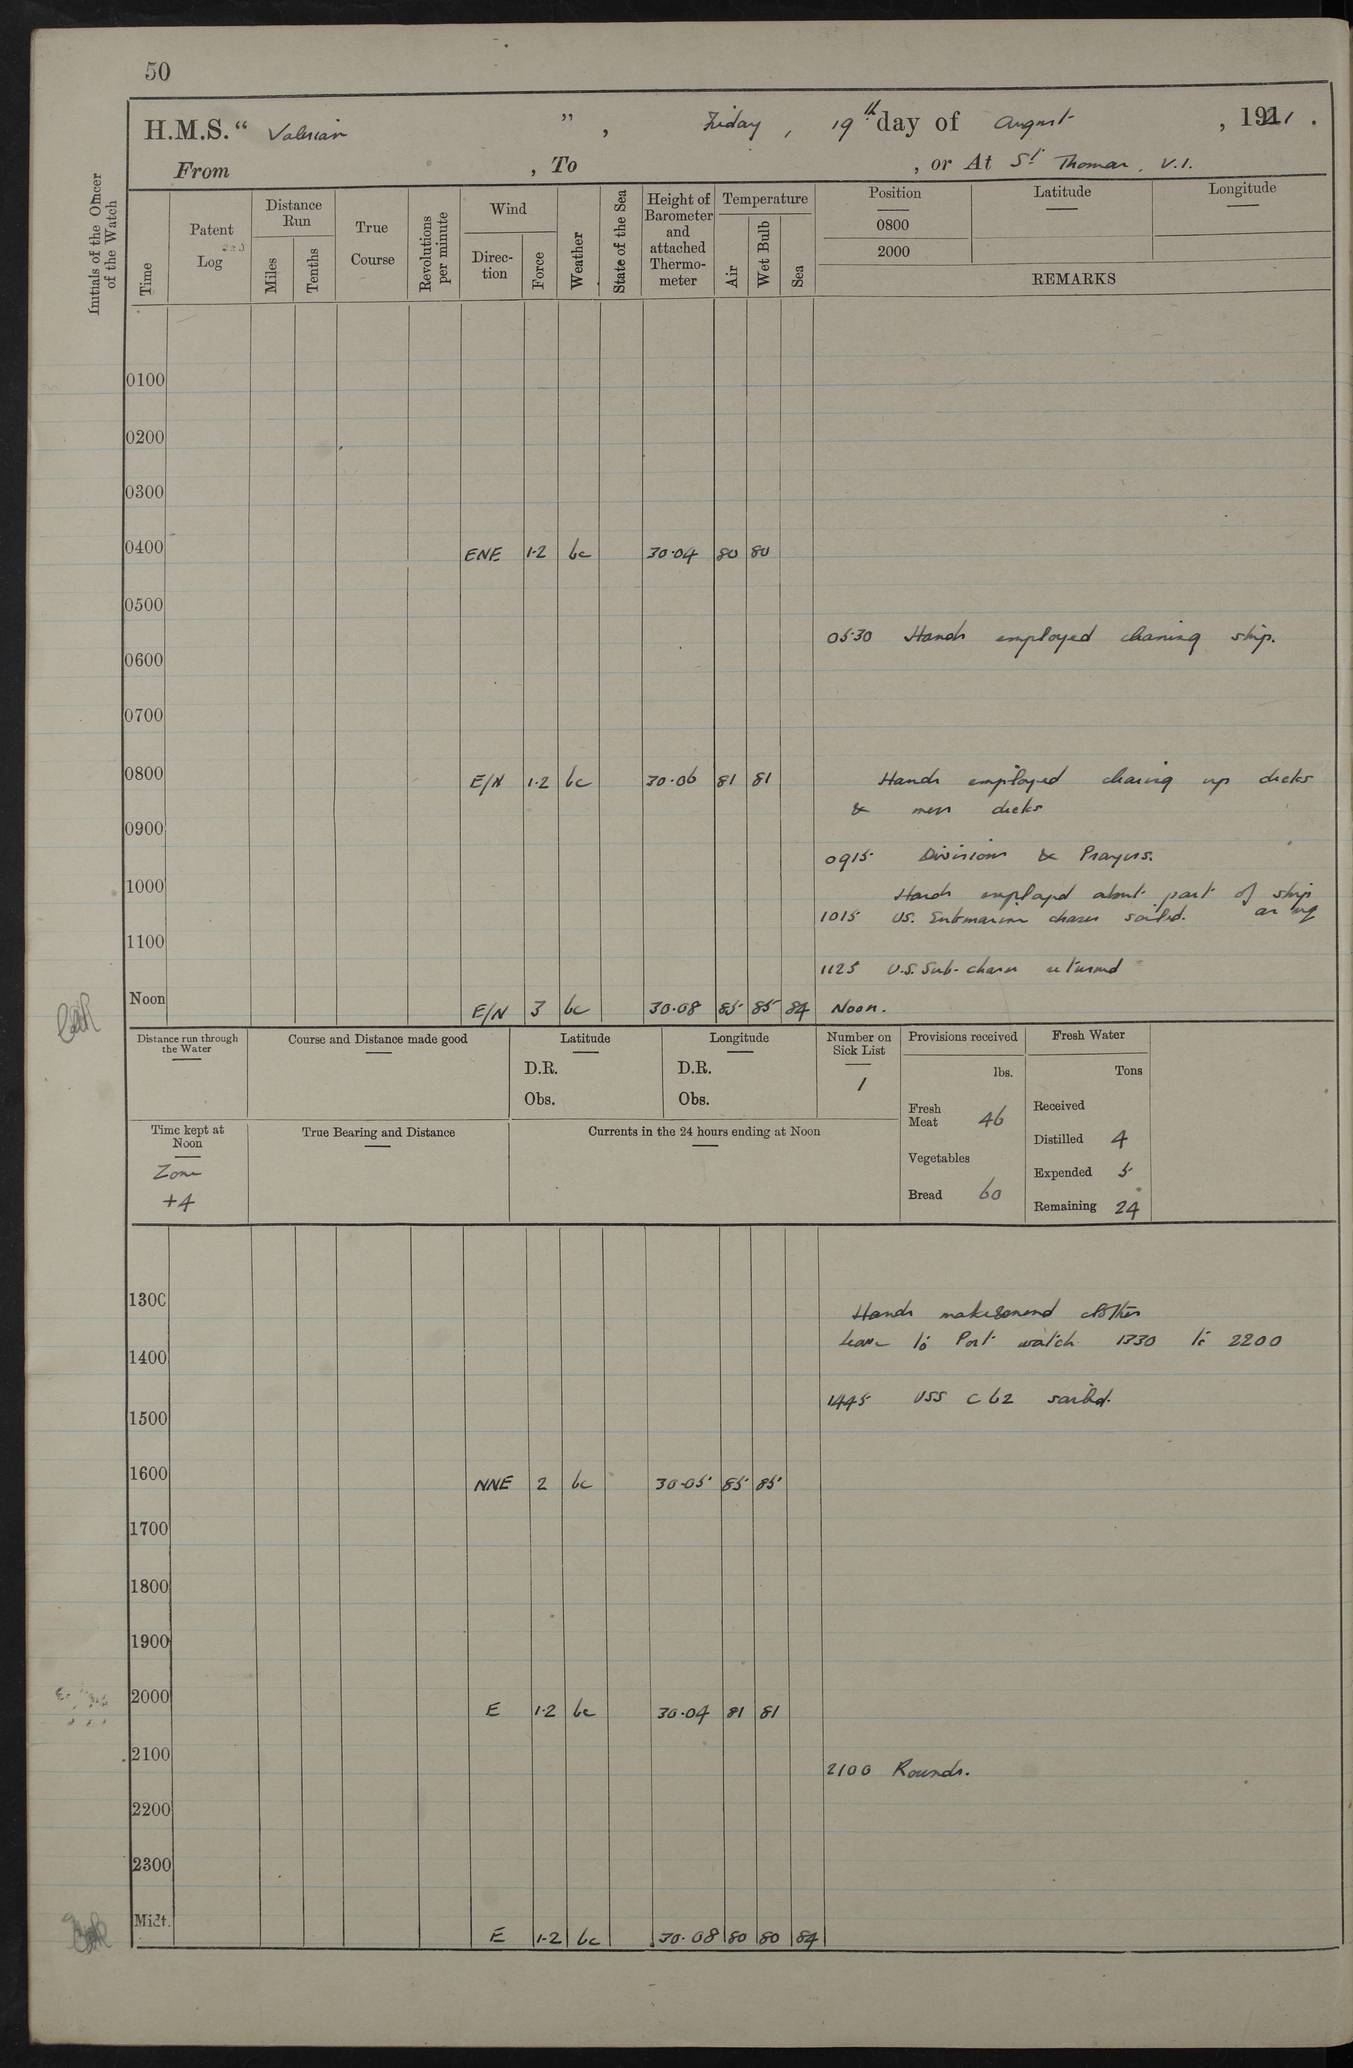 50
H.M.S. “ Valerian ” , Friday , 19th day of August , 1921 .
From , To , or At St Thomas, V.I.
Initials of the Officer of the Watch
Time
Patent Log
Distance Run
Miles
Tenths
True Course
Revolutions per minute
Wind
Direc-tion
Force
Weather
State of the Sea
Height of Barometer and attached Thermo-meter
Temperature
Air
Wet Bulb
Sea
Position
Latitude
Longitude
0800
2000
REMARKS
0100
0200
0300
0400 ENE 1·2 bc 30·04 80 80
0500
0530 Hands employed cleaning ship.
0600
0700
0800 E/N 1·2 bc 30·06 81 81 Hands employed clearing up decks
& mess decks
0900
0915 Divisions & Prayers.
1000 Hands employed about part of ship
1015 U.S. Submarine chaser sailed. as req
1100
1125 U.S. Sub-chaser returned
Noon E/N 3 bc 30·08 85 85 84 Noon.
Distance run through the Water
Course and Distance made good
Latitude
D.R.
Obs.
Longitude
D.R.
Obs.
Number on Sick List
1
Provisions received
lbs.
Fresh Meat 46
Vegetables
Bread 60
Fresh Water
Tons
Received
Distilled 4
Expended 5
Remaining 24
Time kept at Noon
Zone
+4
True Bearing and Distance
Currents in the 24 hours ending at Noon
1300 Hands make & mend clothes
Leave to Port watch 1330 to 2200
1400
1445 USS C 62 sailed.
1500
1600 NNE 2 bc 30·05 85 85
1700
1800
1900
2000 E 1·2 bc 30·04 81 81
2100
2100 Rounds.
2200
2300
Midt. E 1·2 bc 30·08 80 80 84